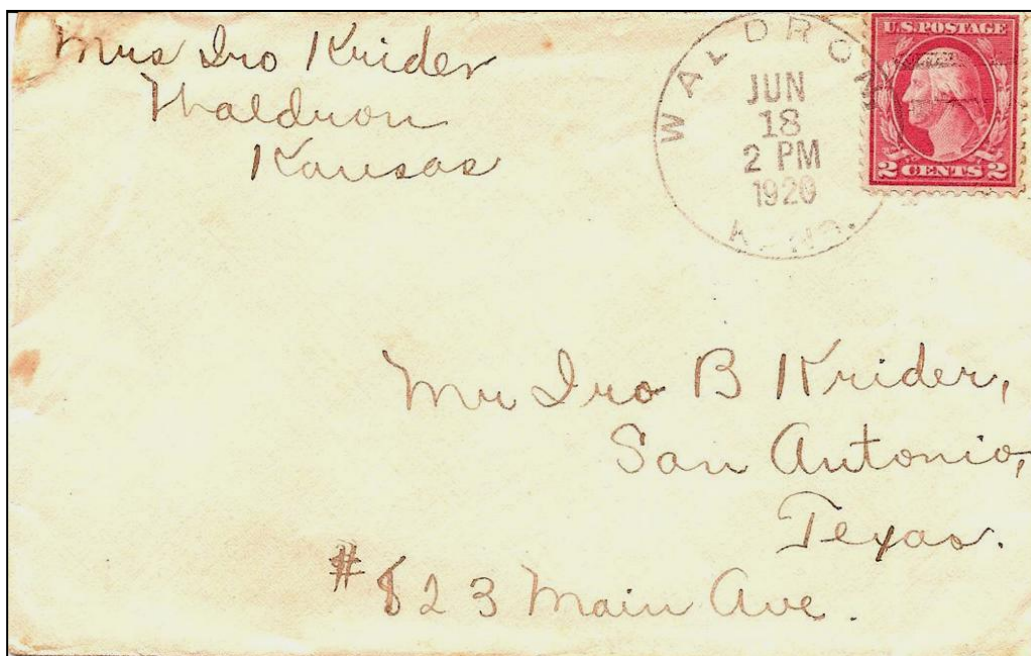 Mrs Iro Krider
Waldron
Kansas
WALDRON
JUN
18
2 PM
1920
KANS.
U.S. POSTAGE
2 CENTS 2
Mr Iro B Krider,
San Antonio,
Texas.
#823 Main Ave.